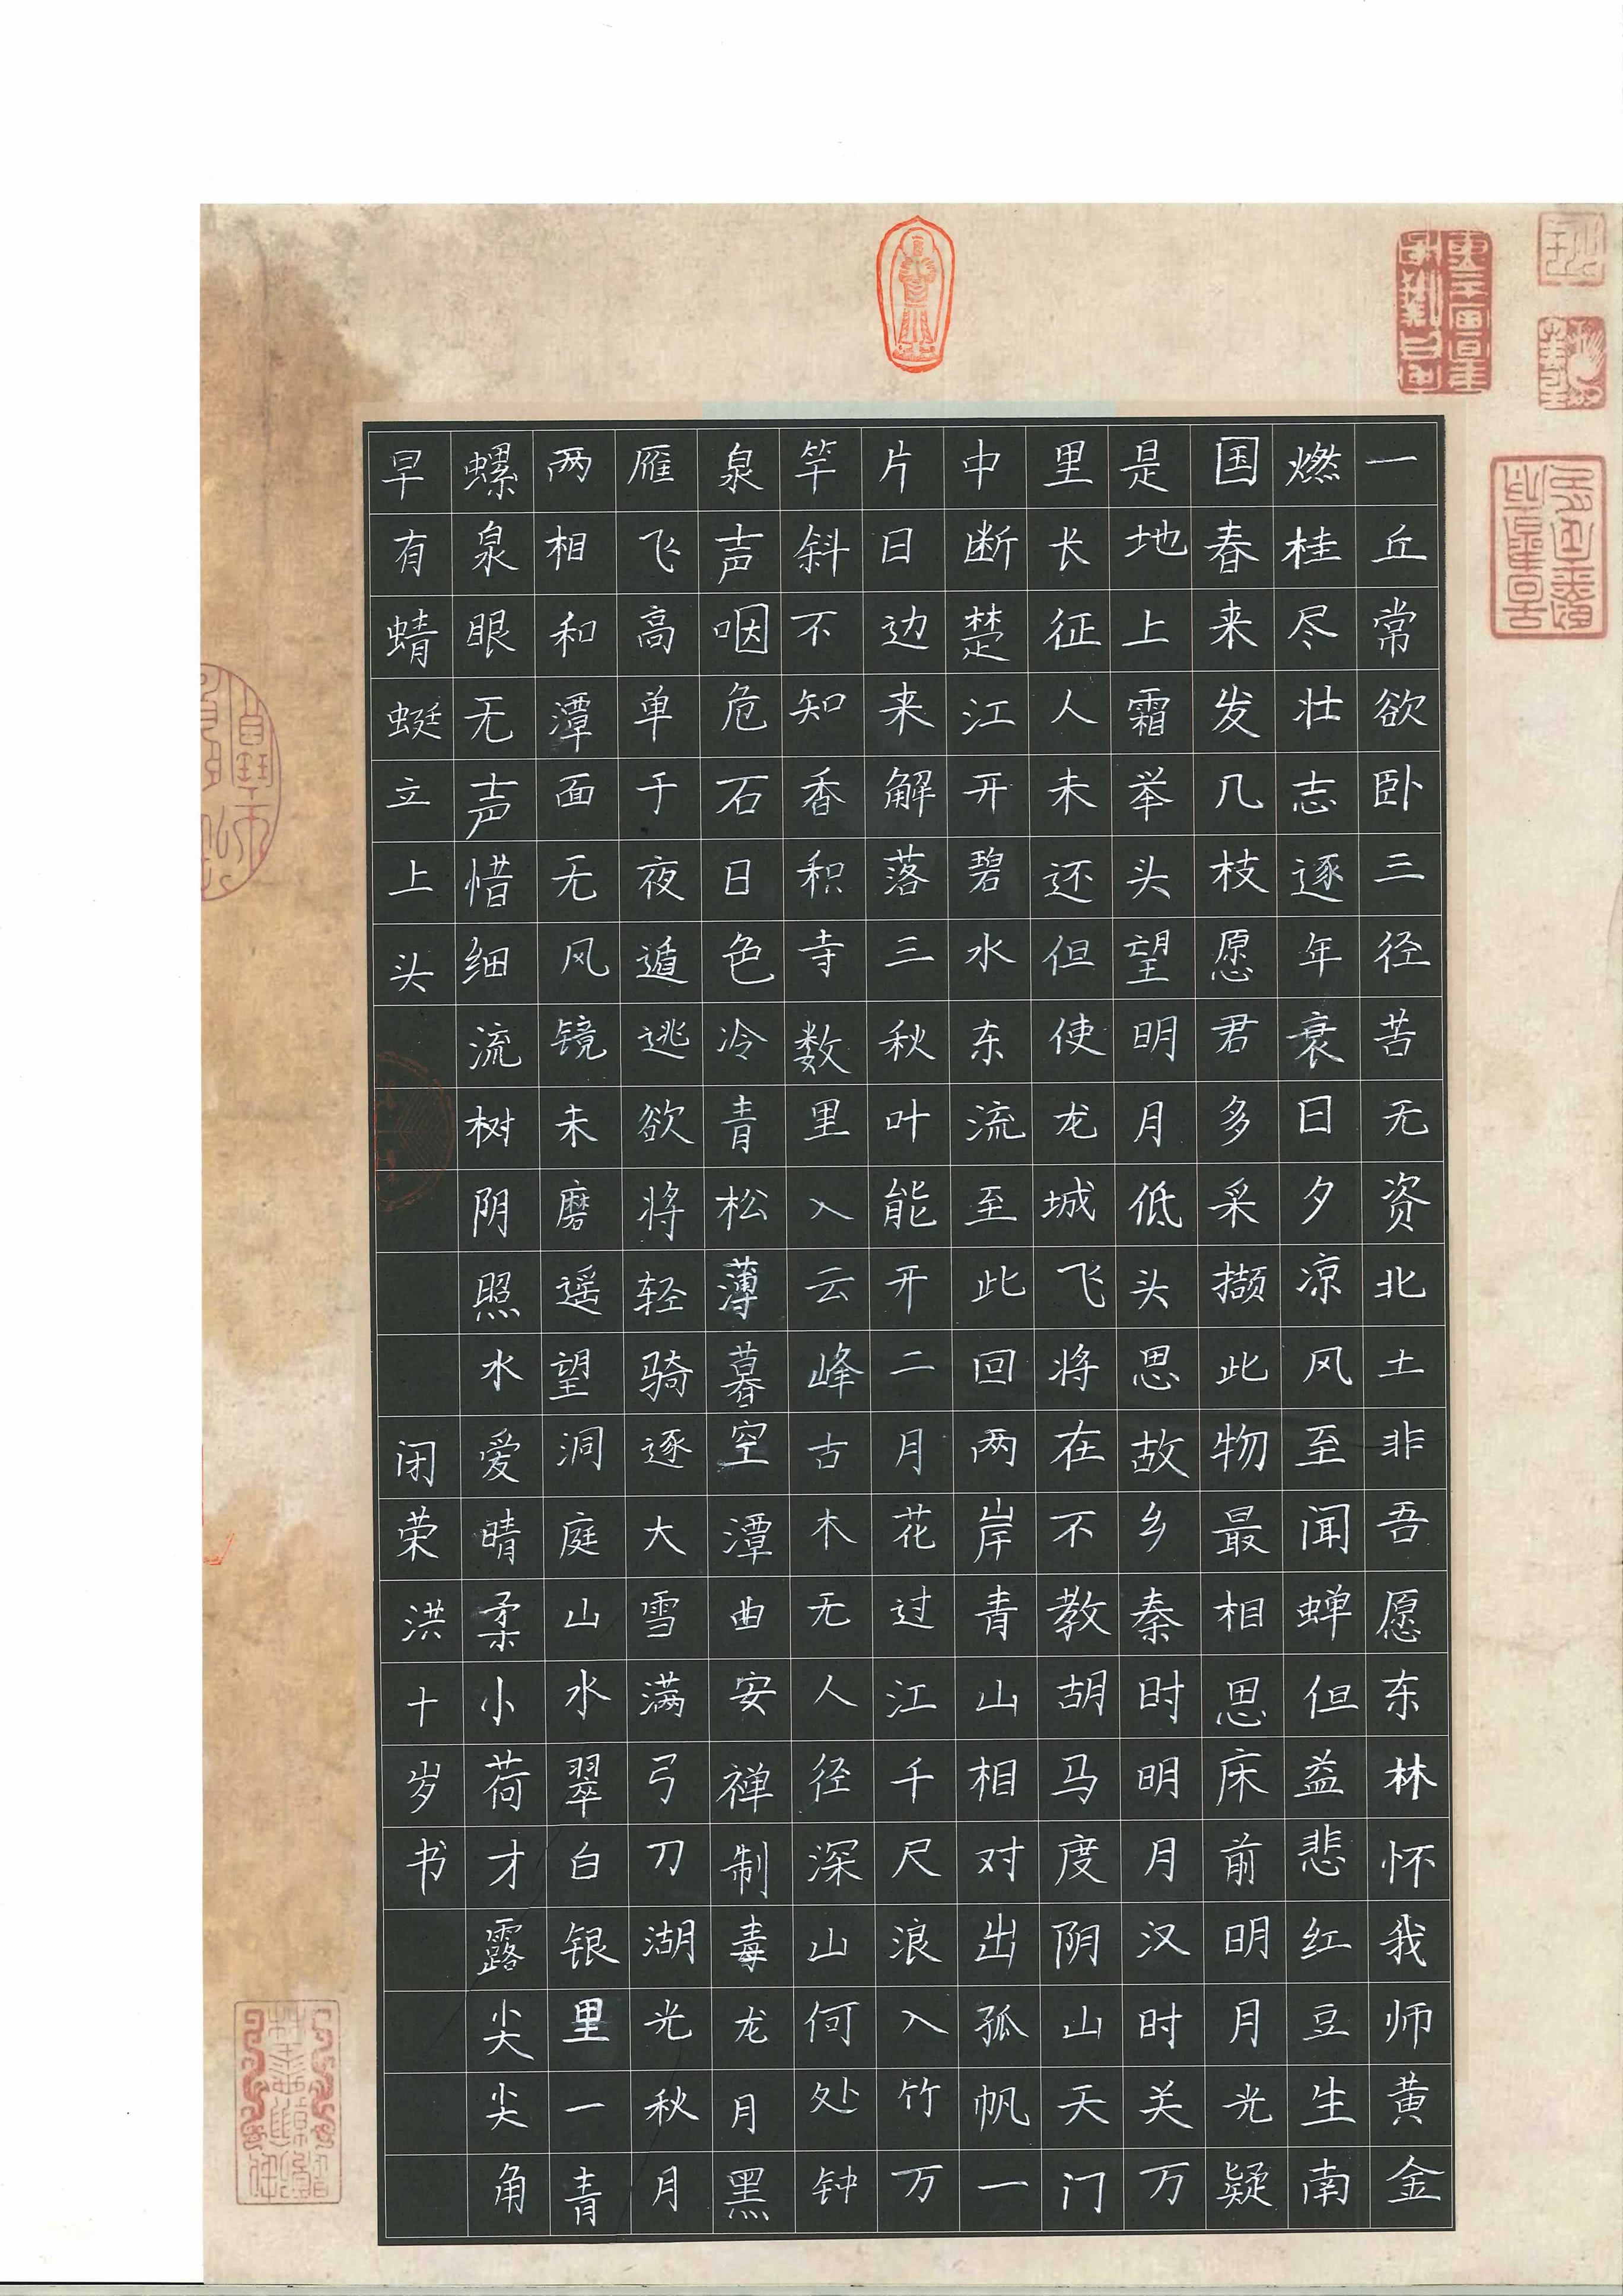 一丘常欲卧三径苦无资北土非吾愿东林怀我师黄金
燃桂尽壮志逐年衰日夕凉风至闻蝉但益悲红豆生南
国春来发几枝愿君多采撷此物最相思床前明月光疑
是地上霜举头望明月低头思故乡秦时明月汉时关万
里长征人未还但使龙城飞将在不教胡马度阴山天门
中断楚江开碧水东流至此回两岸青山相对出孤帆一
片日边来解落三秋叶能开二月花过江千尺浪入竹万
竿斜不知香积寺数里入云峰古木无人径深山何处钟
泉声咽危石日色冷青松薄暮空潭曲安禅制毒龙月黑
雁飞高单于夜遁逃欲将轻骑逐大雪满弓刀湖光秋月
两相和潭面无风镜未磨遥望洞庭山水翠白银里一青
螺泉眼无声惜细流树阴照水爱晴柔小荷才露尖尖角
早有蜻蜓立上头
闭荣洪十岁书